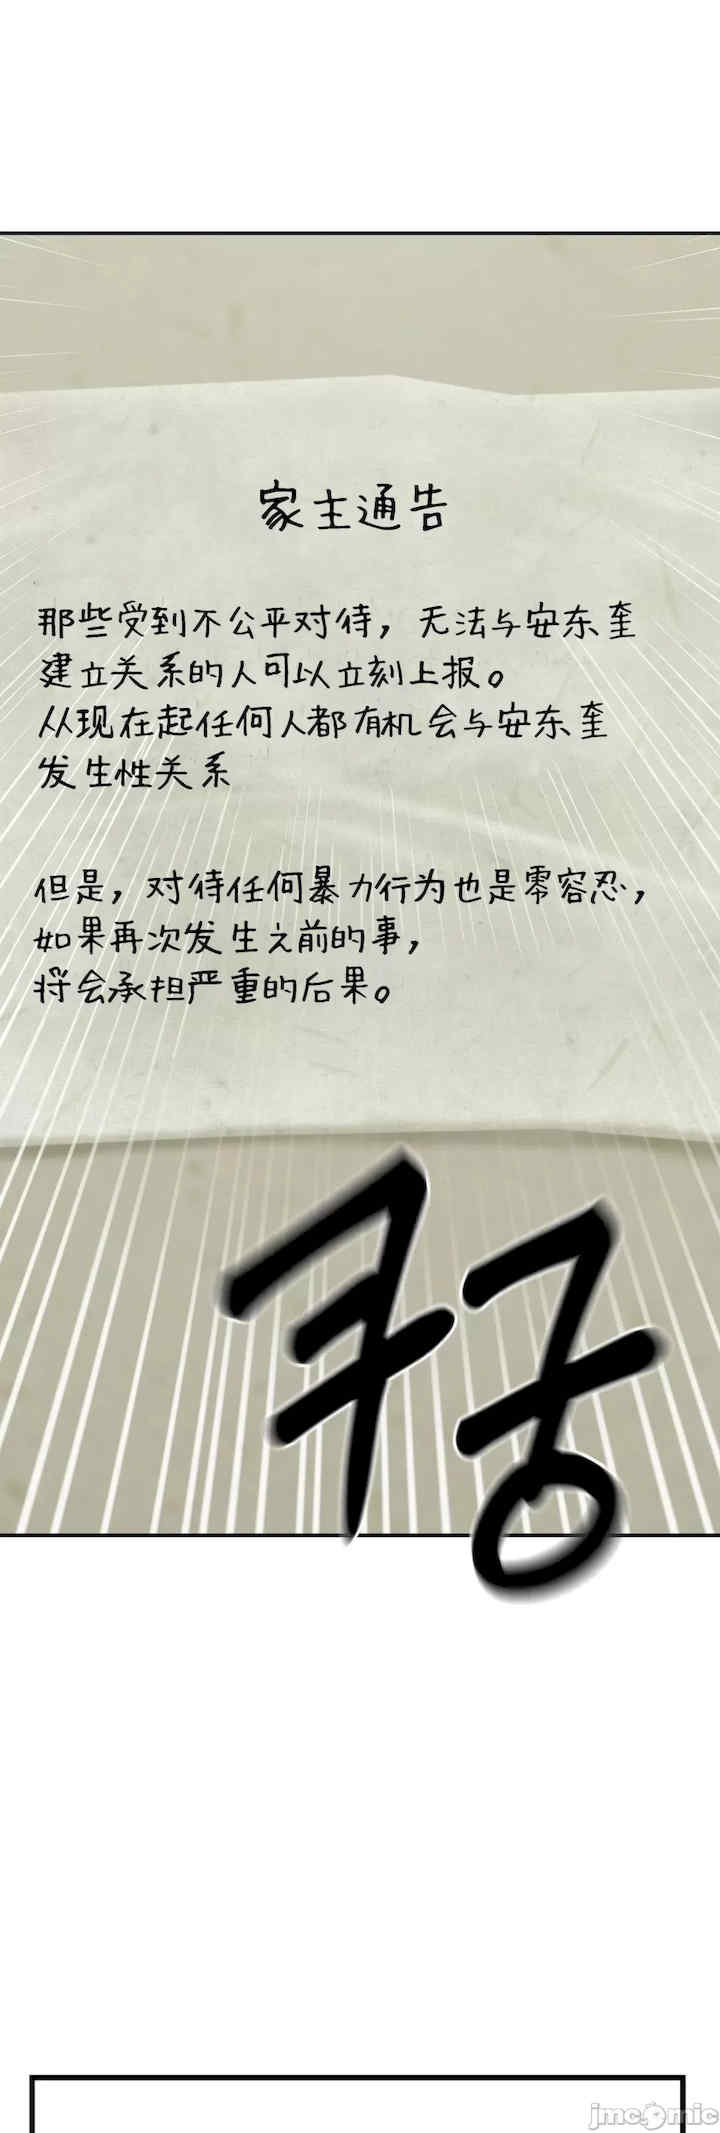 家主通告
那些受到不公平对待，无法与安东奎
建立关系的人可以立刻上报。
从现在起任何人都有机会与安东奎
发生性关系
但是，对待任何暴力行为也是零容忍，
如果再次发生之前的事，
将会承担严重的后果。
jmcomic